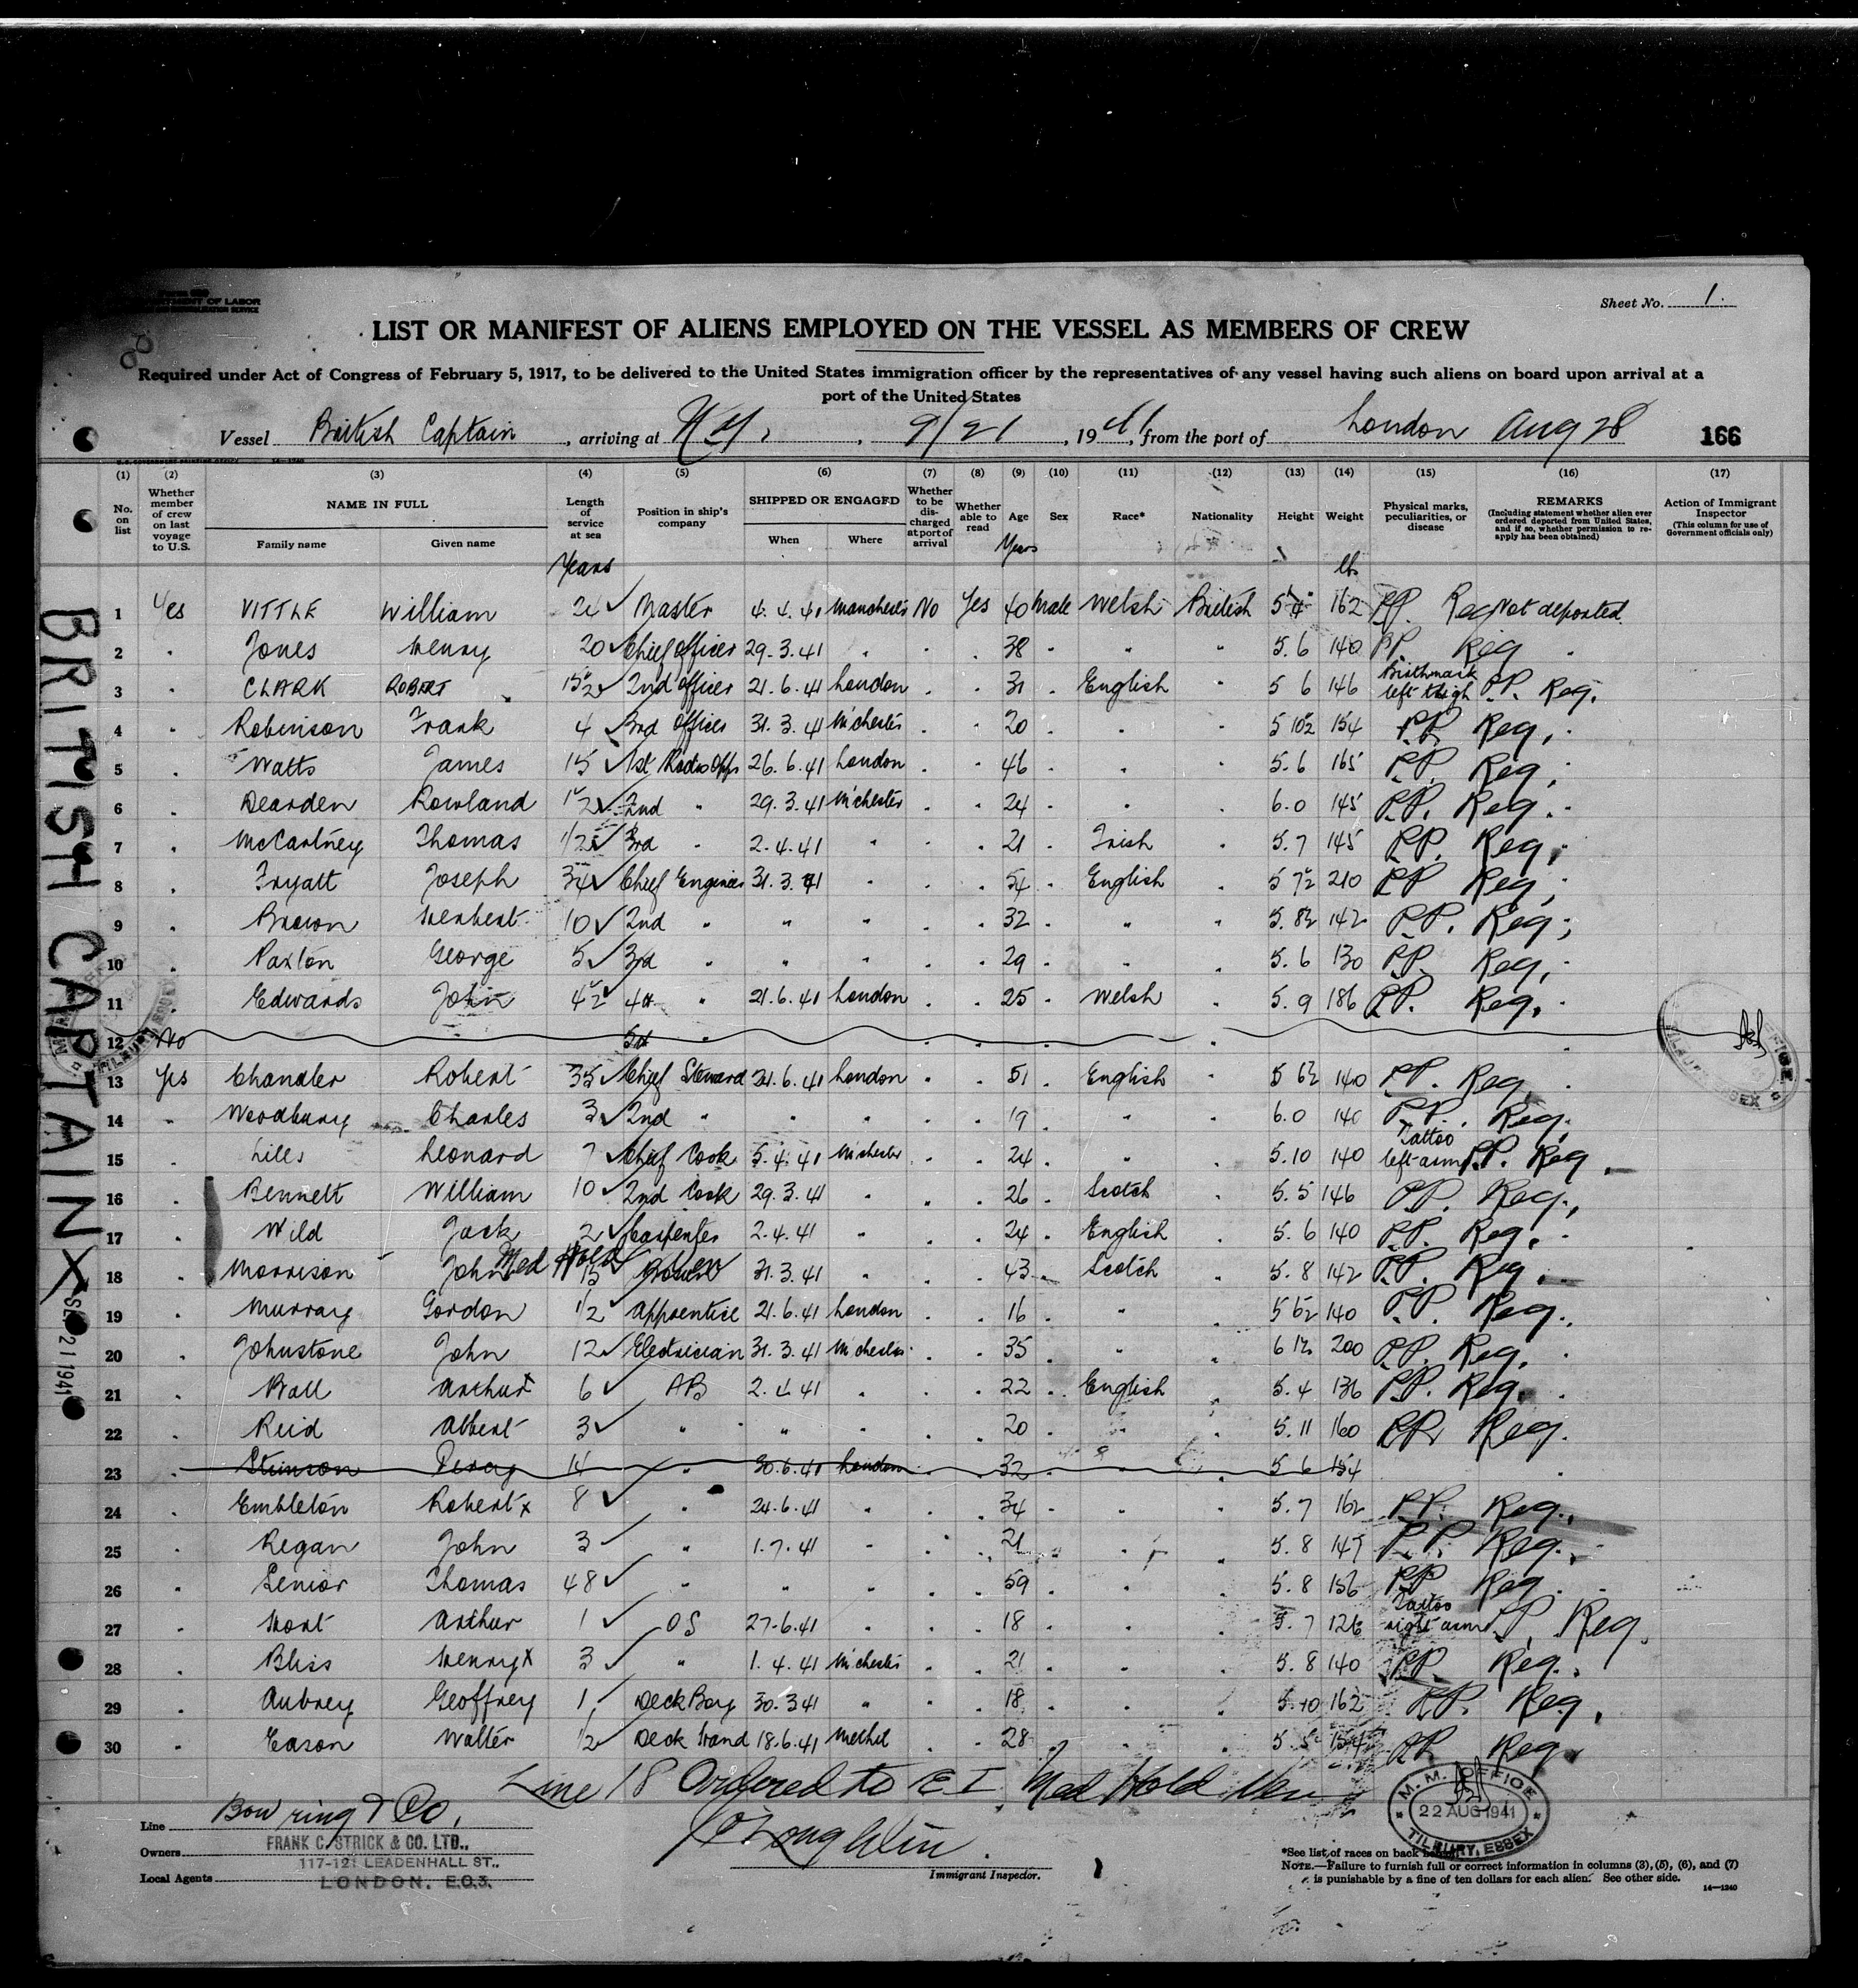 Sheet No. 1.
LIST OR MANIFEST OF ALIENS EMPLOYED ON THE VESSEL AS MEMBERS OF CREW
Required under Act of Congress of February 5, 1917, to be delivered to the United States immigration officer by the representatives of any vessel having such aliens on board upon arrival at a
port of the United States
Vessel British Captain, arriving at N.Y., 9/21, 1941, from the port of London Aug 28 166
(1) (2) (3) (4) (5) (6) (7) (8) (9) (10) (11) (12) (13) (14) (15) (16) (17)
No. on list
Whether member of crew on last voyage to U.S.
NAME IN FULL
Family name Given name
Length of service at sea
Position in ship's company
SHIPPED OR ENGAGED
When Where
Whether to be discharged at port of arrival
Whether able to read
Age
Sex
Race*
Nationality
Height
Weight
Physical marks, peculiarities, or disease
REMARKS
(Including statement whether alien ever ordered deported from United States, and if so, whether permission to reapply has been obtained)
Action of Immigrant Inspector
(This column for use of Government officials only)
Years Years
1 Yes VITTLE William Master 4.4.41 Manchester No Yes 40 Male Welsh British 162 PP. Reg Not deported
2 " Jones Henry 20 Chief Officer 29.3.41 " " " 38 " " " 5.6 140 PP Reg
3 " CLARK ROBERT 15½ 2nd Officer 21.6.41 London " " 31 " English " 5 6 146 Birthmark left thigh PP. Reg.
4 " Robinson Frank 4 3rd Officer 31.3.41 M'chester " " 20 " " " 5 10½ 154 PP Reg.
5 " Watts James 15 1st Radio Opr 26.6.41 London " " 46 " " " 5.6 165 PP. Reg.
6 " Dearden Rowland 2nd " 29.3.41 M'chester " " 24 " " " 6.0 145 PP. Reg.
7 " McCartney Thomas 3rd " 2.4.41 " " " 21 " Irish " 5.7 145 PP. Reg.
8 " Fryatt Joseph 34 Chief Engineer 31.3.41 " " " 54 " English " 5 7½ 210 PP Reg.
9 " Brown Herbert 10 2nd " " " " " 32 " " " 5.8½ 142 PP. Reg.
10 " Paxton George 5 3rd " " " " " 29 " " " 5.6 130 PP. Reg.
11 " Edwards John 4½ 4th " 21.6.41 London " " 25 " Welsh " 5.9 186 PP. Reg.
12 No 5th "
13 Yes Chandler Robert 35 Chief Steward 21.6.41 London " " 51 " English " 5 6½ 140 PP. Reg.
14 " Woodbury Charles 3 2nd " " " " " 19 " " " 6.0 140 PP. Reg.
15 " Liles Leonard 7 Chief Cook 5.4.41 M'chester " " 24 " " " 5.10 140 Tattoo left arm PP. Reg.
16 " Bennett William 10 2nd Cook 29.3.41 " " " 26 " Scotch " 5.5 146 PP. Reg.
17 " Wild Jack 2 Carpenter 2.4.41 " " " 24 " English " 5.6 140 PP. Reg.
18 " Morrison John Med Hold 15 31.3.41 " " " 43 " Scotch " 5.8 142 PP. Reg.
19 " Murray Gordon 1/2 Apprentice 21.6.41 London " " 16 " " " 5 6½ 140 PP. Reg.
20 " Johnstone John 12 Electrician 31.3.41 M'chester " " 35 " " " 6 1½ 200 PP. Reg.
21 " Ball Arthur 6 AB 2.4.41 " " " 22 " English " 5.4 136 PP. Reg.
22 " Reid Albert 3 " " " " " 20 " " " 5.11 160 PP. Reg.
23 " Stimson Percy 14 " 30.6.41 London " " 32 " " " 5 6 154
24 " Embleton Robert x 8 " 24.6.41 " " " 34 " " " 5.7 162 PP. Reg.
25 " Regan John 3 " 1.7.41 " " " 21 " " " 5.8 147 PP. Reg.
26 " Senior Thomas 48 " " " " " 59 " " " 5.8 156 PP Reg.
27 " Hort Arthur 1 OS 27.6.41 " " " 18 " " " 5.7 126 Tattoo right arm PP. Reg.
28 " Bliss Henry x 3 " 1.4.41 M'chester " " 21 " " " 5.8 140 PP. Reg.
29 " Aubrey Geoffrey 1 Deck Boy 30.3.41 " " " 18 " " " 5.10 162 PP. Reg.
30 " Eason Walter 1/2 Deck Hand 18.6.41 Methil " " 28 " " " 5.5 154 PP. Reg.
BRITISH CAPTAIN X
SEP 21 1941
Line 18 Ordered to E I Med Hold
Line Bowring & Co.
Owners FRANK C. STRICK & CO. LTD.,
117-121 LEADENHALL ST.,
Local Agents LONDON, E.C.3.
O'Loughlin
Immigrant Inspector.
M. M. OFFICE
22 AUG 1941
TILBURY, ESSEX
*See list of races on back
NOTE.—Failure to furnish full or correct information in columns (3), (5), (6), and (7)
is punishable by a fine of ten dollars for each alien. See other side.
14—1240